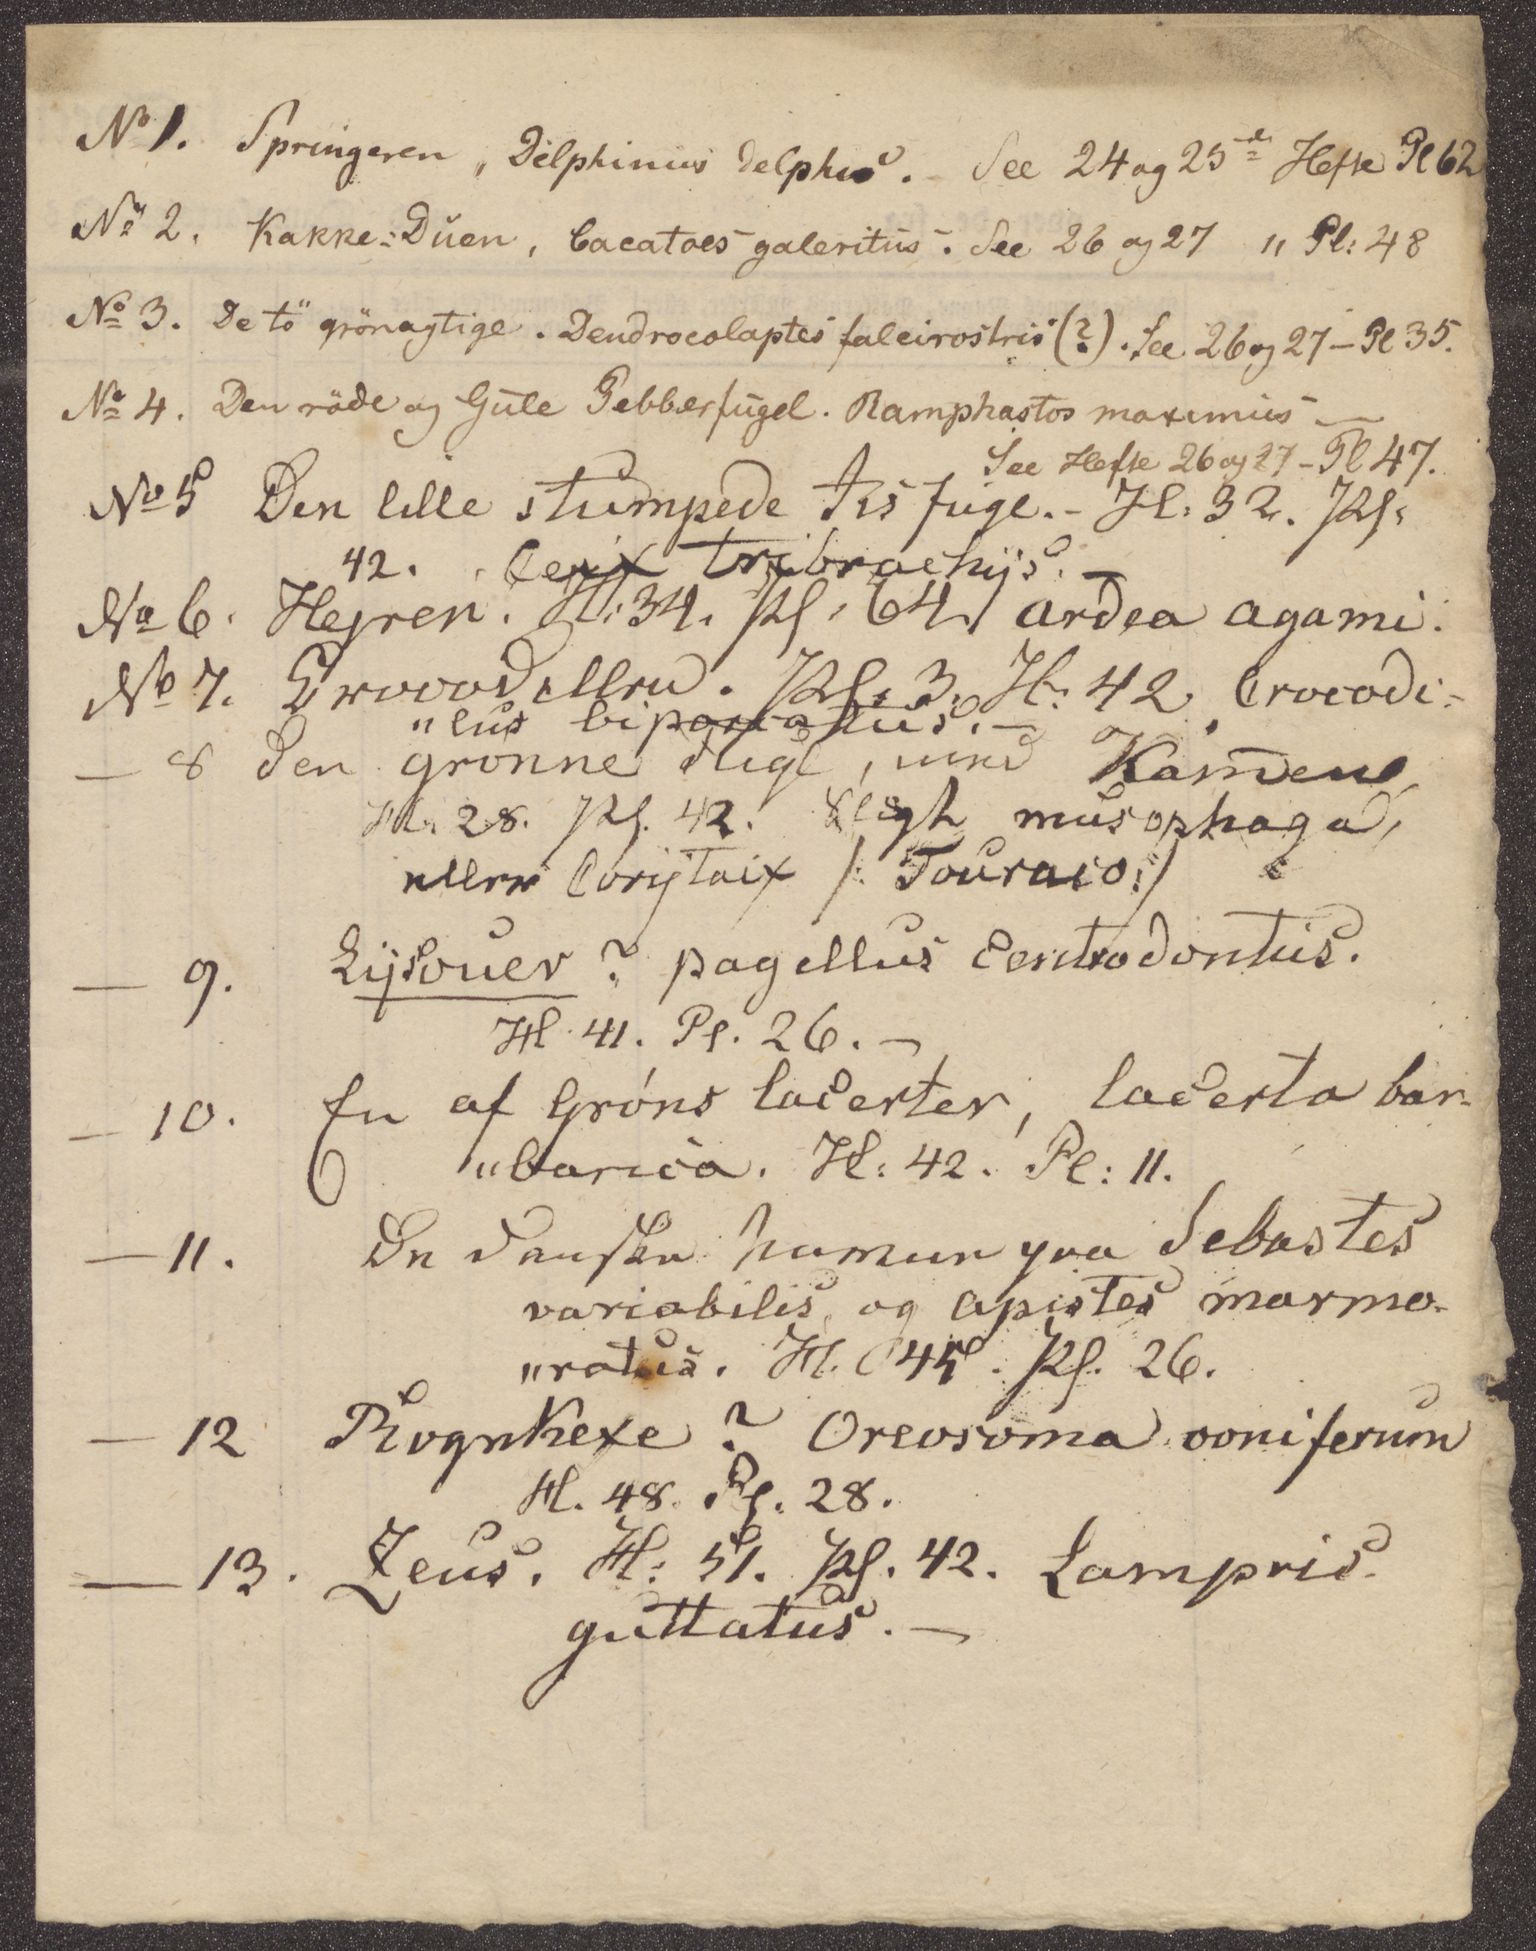 No 1. Springeren, Delphinus delphis. See 24 og 25de Hefte Pl 62
No 2. Kakke=Düen, Cacatoes galeritus. See 26 og 27 " Pl: 48
No 3. De to grönagtige. Dendrocolaptes falcirostris (?). See 26 og 27 — Pl 35.
No 4. Den röde og Gule Pebberfugel. Ramphastos maximus —
See Hefte 26 og 27 — Pl 47.
No 5 Den lille stumpede Iis fugl. - H: 32. Pl:
42. Ceix tribrachys. —
No 6. Hejren. H: 34. Pl. 64. ardea agami.
No 7. Crocodillen. Pl. 3. H: 42. Crocodi-
"lus biporcatus. —
— 8 Den grönne med
H. 28. Pl. 42. musophaga,
eller Corytaix /: Touraco :/
— 9. Lysouer ? pagellus Centrodontus.
H 41. Pl. 26. —
— 10. En af Gröns lacerter, lacerta bar-
"barica. H: 42. Pl: 11.
— 11. De danske namne paa Sebastes
variabilis og apistes marmo-
"ratus. H. 45. Pl. 26.
— 12 Rognkexe ? Oreosoma coniferum
H. 48. Pl. 28.
— 13. Zeus. H: 51. Pl. 42. Lampris
guttatus. —